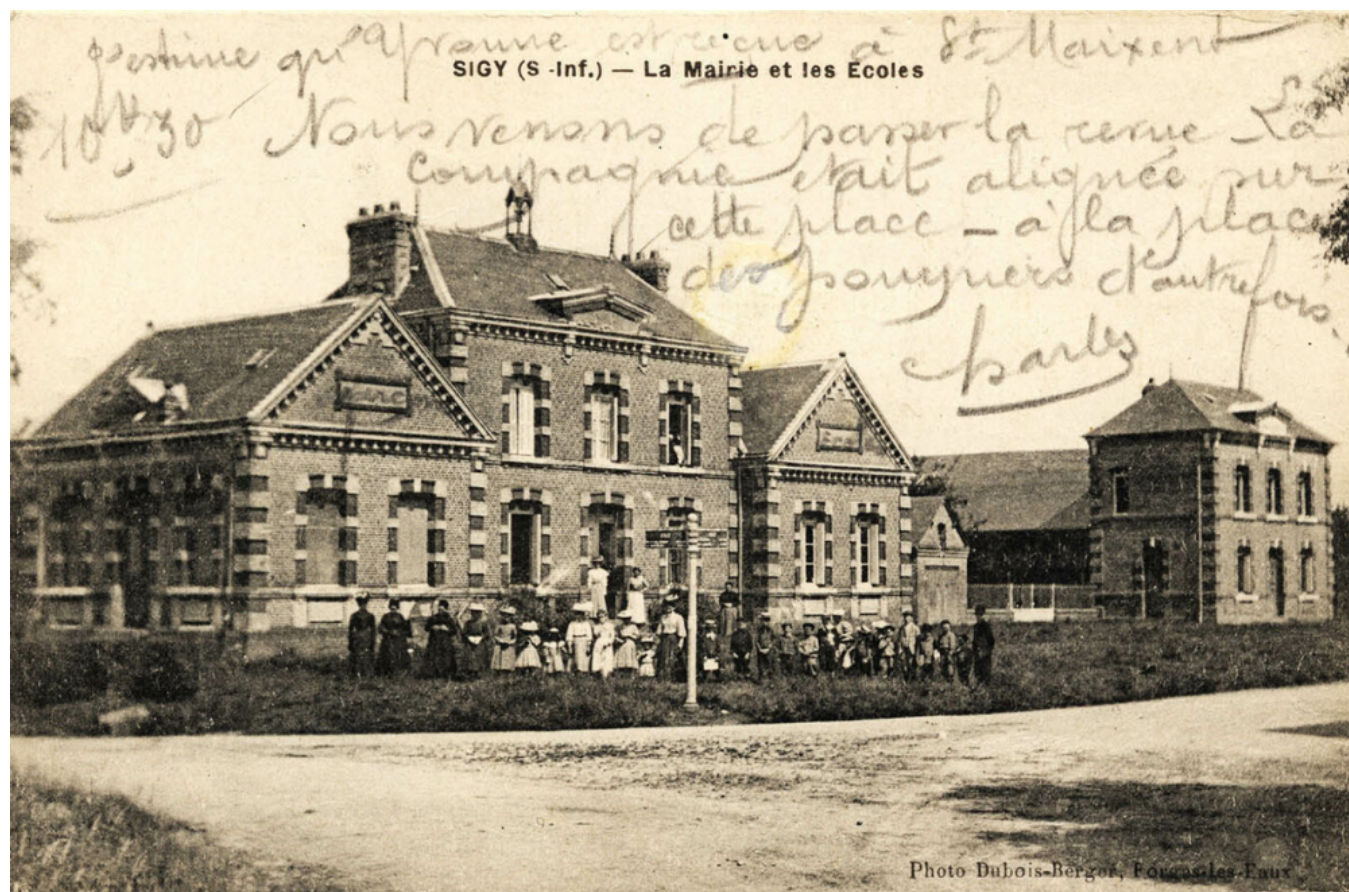 J'estime qu'Yvonne est reçue à St Maixent
SIGY (S -Inf.) — La Mairie et les Ecoles
10h30 Nous venons de passer la revue La
Compagnie était alignée sur
cette place - à la place
des pompiers d'autrefois.
Charles
Photo Dubois-Berger, Forges-les-Eaux